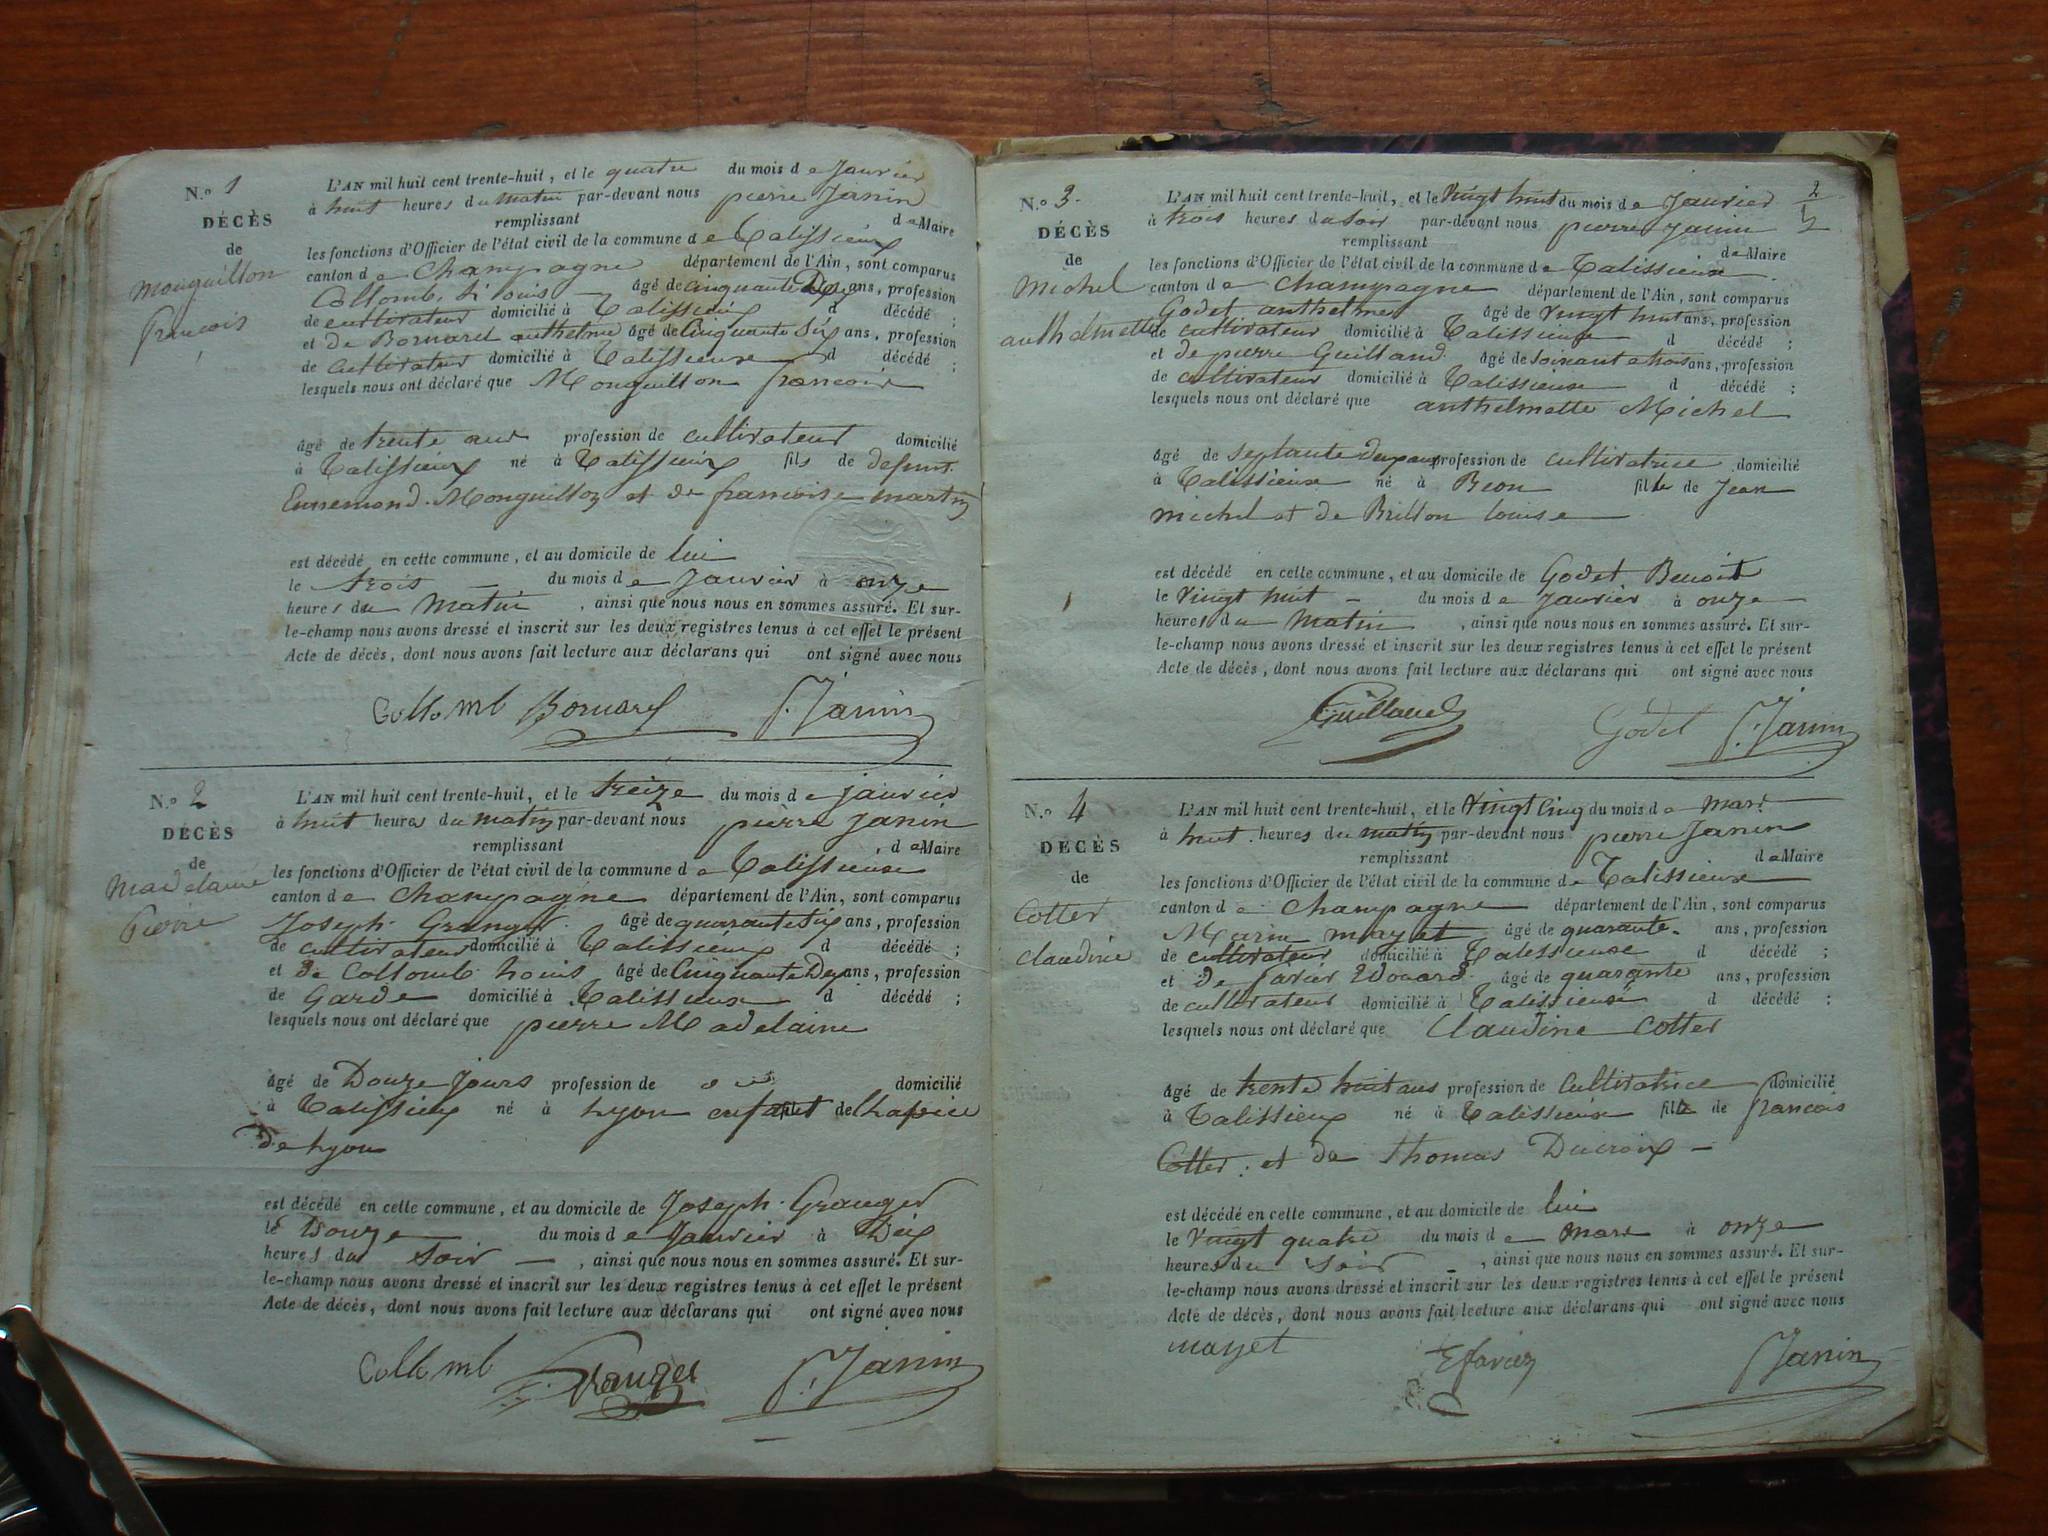 N.º 1
DÉCÈS
de
Monguillon
françois
L'AN mil huit cent trente-huit, et le quatre du mois de Janvier
à huit heures du matin par-devant nous pierre Janin
remplissant de Maire
les fonctions d'Officier de l'état civil de la commune de Talissieux
canton de Champagne département de l'Ain, sont comparus
Collomb Louis âgé de cinquante Deux ans, profession
de cultivateur domicilié à Talissieux d décédé ;
et de Bornard anthelme âgé de Cinquante Six ans, profession
de Cultivateur domicilié à Talissieux d décédé ;
lesquels nous ont déclaré que Monguillon francois
âgé de trente ans profession de cultivateur domicilié
à Talissieux né à Talissieux fils de defunt
Ennemond Monguillon et de francoise martin
est décédé en cette commune, et au domicile de lui
le trois du mois de Janvier à onze
heures du Matin , ainsi que nous nous en sommes assuré. Et sur-
le-champ nous avons dressé et inscrit sur les deux registres tenus à cet effet le présent
Acte de décès, dont nous avons fait lecture aux déclarans qui ont signé avec nous
Collomb Bornard P. Janin
N.º 2
DÉCÈS
de
Madelaine
Pierre
L'AN mil huit cent trente-huit, et le treize du mois de janvier
à huit heures du matin par-devant nous pierre Janin
remplissant de Maire
les fonctions d'Officier de l'état civil de la commune de Talissieux
canton de Champagne département de l'Ain, sont comparus
Joseph Granger âgé de quarante Six ans, profession
de cultivateur domicilié à Talissieux d décédé ;
et de Collomb Louis âgé de Cinquante Deux ans, profession
de Garde domicilié à Talissieux d décédé ;
lesquels nous ont déclaré que pierre Madelaine
âgé de Douze Jours profession de domicilié
à Talissieux né à Lyon enfant de Lhospice
de Lyon
est décédé en cette commune, et au domicile de Joseph Granger
le Douze du mois de Janvier à Dix
heures du Soir , ainsi que nous nous en sommes assuré. Et sur-
le-champ nous avons dressé et inscrit sur les deux registres tenus à cet effet le présent
Acte de décès, dont nous avons fait lecture aux déclarans qui ont signé avec nous
Collomb Granger P. Janin
2
N.º 3.
DÉCÈS
de
Michel
anthelmette
L'AN mil huit cent trente-huit, et le Vingt huit du mois de Janvier
à trois heures du soir par-devant nous pierre Janin
remplissant de Maire
les fonctions d'Officier de l'état civil de la commune de Talissieux
canton de Champagne département de l'Ain, sont comparus
Godet anthelme âgé de Vingt huit ans, profession
de cultivateur domicilié à Talissieux d décédé ;
et de pierre Guilland âgé de soixante trois ans, profession
de cultivateur domicilié à Talissieux d décédé ;
lesquels nous ont déclaré que anthelmette Michel
âgé de septante Deux ans profession de cultivatrice domicilié
à Talissieux né à Beon fille de Jean
Michel et de Brillon Louise
est décédé en cette commune, et au domicile de Godet Benoit
le Vingt huit du mois de Janvier à onze
heures du Matin , ainsi que nous nous en sommes assuré. Et sur-
le-champ nous avons dressé et inscrit sur les deux registres tenus à cet effet le présent
Acte de décès, dont nous avons fait lecture aux déclarans qui ont signé avec nous
Guilland Godet P. Janin
N.º 4
DÉCÈS
de
Cotter
claudine
L'AN mil huit cent trente-huit, et le Vingt Cinq du mois de Mars
à huit heures du matin par-devant nous pierre Janin
remplissant de Maire
les fonctions d'Officier de l'état civil de la commune de Talissieux
canton de Champagne département de l'Ain, sont comparus
Marin mayet âgé de quarante ans, profession
de cultivateur domicilié à Talissieux d décédé ;
et de favier Edouard âgé de quarante ans, profession
de cultivateur domicilié à Talissieux d décédé ;
lesquels nous ont déclaré que Claudine Cotter
âgé de trente huit ans profession de Cultivatrice domicilié
à Talissieux né à Talissieux fille de francois
Cotter et de Thomas Ducroix
est décédé en cette commune, et au domicile de lui
le Vingt quatre du mois de Mars à onze
heures du Soir , ainsi que nous nous en sommes assuré. Et sur-
le-champ nous avons dressé et inscrit sur les deux registres tenus à cet effet le présent
Acte de décès, dont nous avons fait lecture aux déclarans qui ont signé avec nous
mayet E favier P. Janin